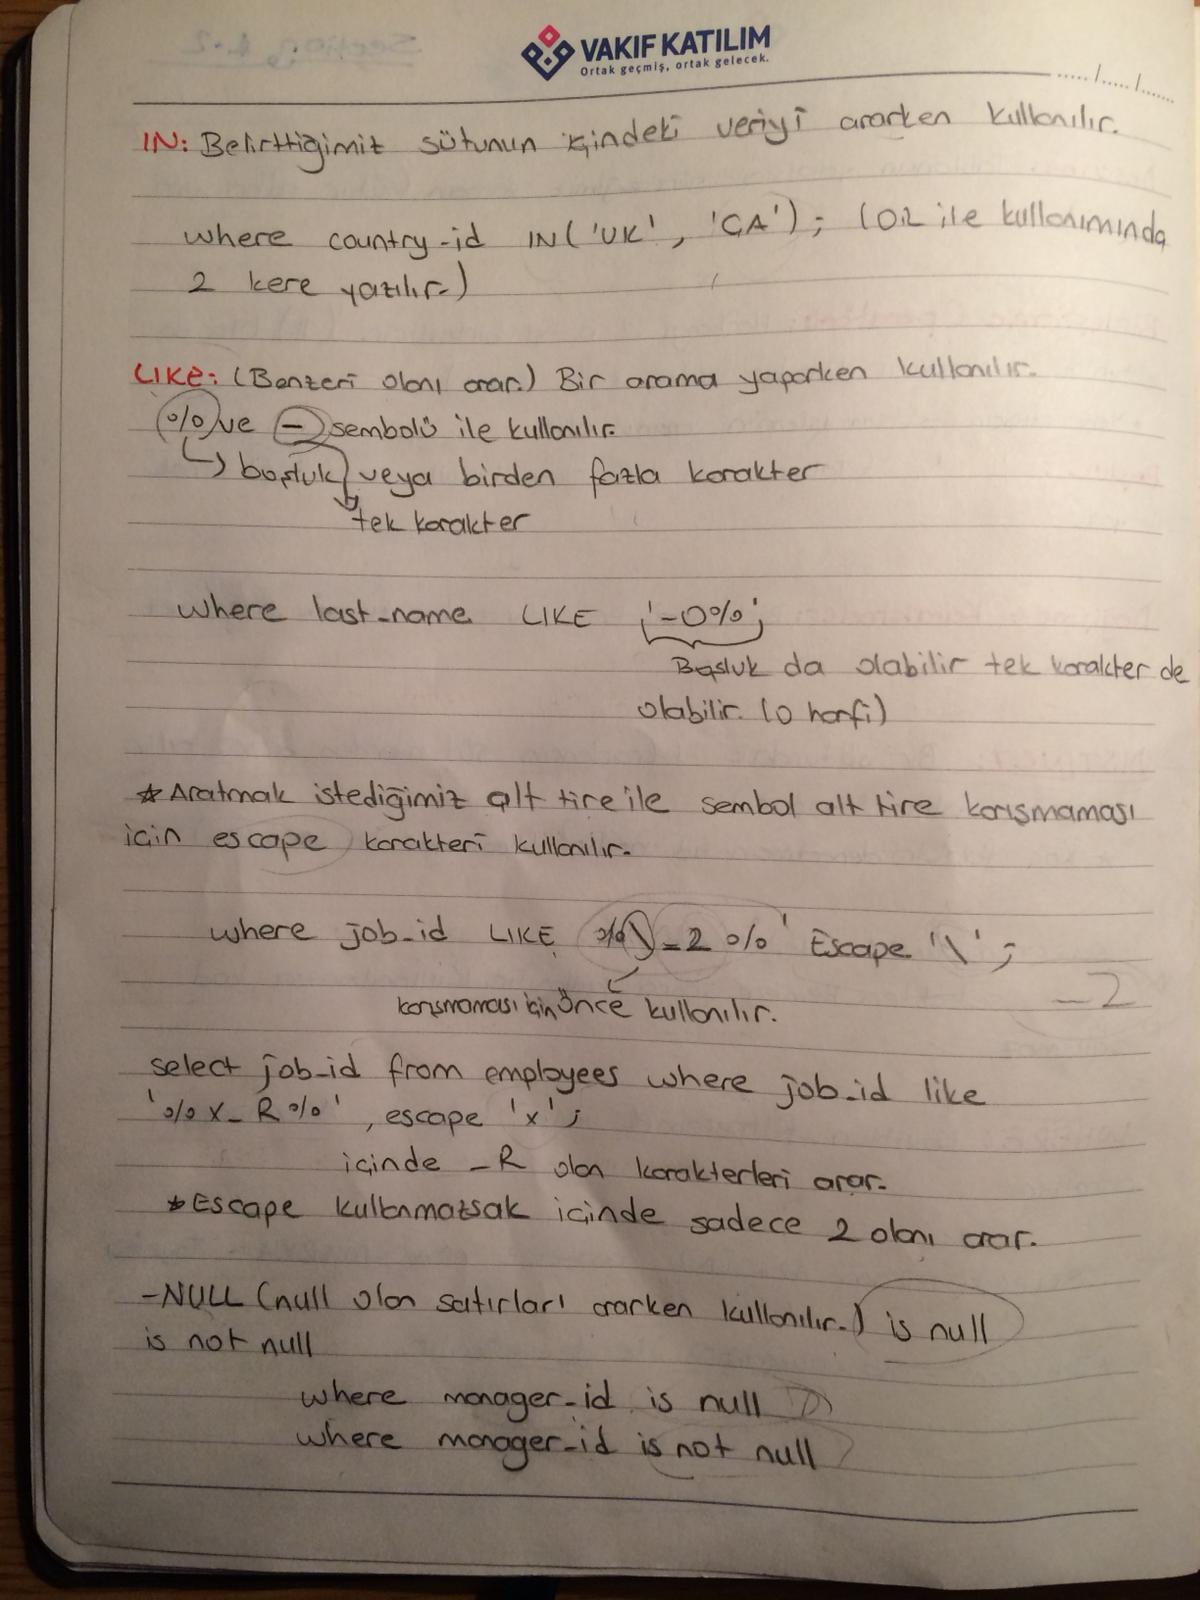 VAKIF KATILIM
Ortak geçmiş, ortak gelecek.
...../...../.....
IN: Belirttiğimiz sütunun içindeki veriyi ararken kullanılır.
where country_id IN('UK', 'CA'); (OR ile kullanımında
2 kere yazılır.)
LIKE: (Benzeri olanı arar.) Bir arama yaparken kullanılır.
% ve _ sembolü ile kullanılır.
boşluk veya birden fazla karakter
tek karakter
where last_name LIKE '_O%';
Boşluk da olabilir tek karakter de
olabilir. (O harfi)
* Aratmak istediğimiz alt tire ile sembol alt tire karışmaması
için escape karakteri kullanılır.
where job_id LIKE '%\_2%' Escape '\';
karışmaması için önce kullanılır.
_2
select job_id from employees where job_id like
'%x_R%', escape 'x';
içinde _R olan karakterleri arar.
* Escape kullanmazsak içinde sadece 2 olanı arar.
-NULL (null olan satırları ararken kullanılır.) is null
is not null
where manager_id is null
where manager_id is not null